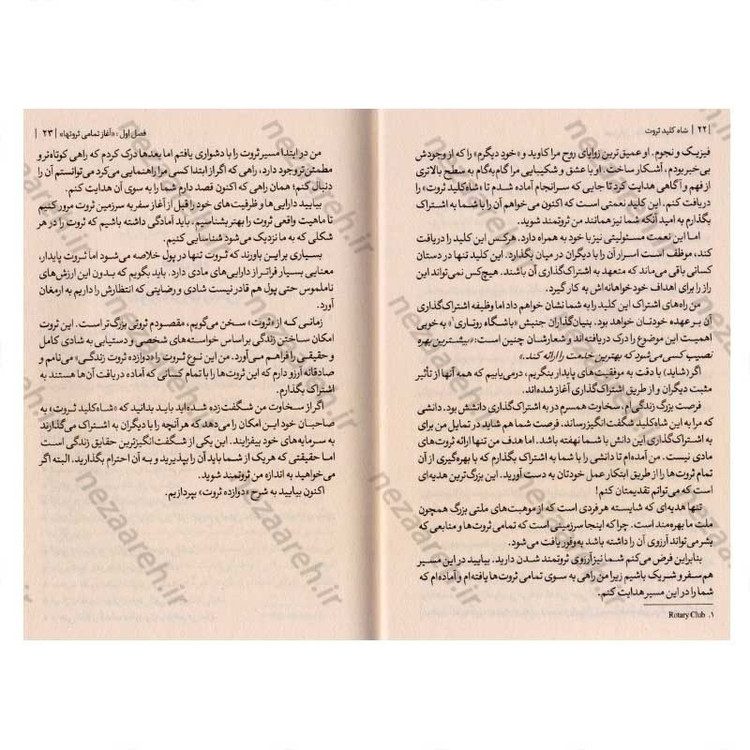 ۲۲ | شاه کلید ثروت
فیزیک و نجوم. او عمیق‌ترین زوایای روح مرا کاوید و «خودِ دیگرم» را که از وجودش
بی‌خبر بودم، آشکار ساخت. او با عشق و شکیبایی مرا گام‌به‌گام به سطح بالاتری
از فهم و آگاهی هدایت کرد تا جایی که سرانجام آماده شدم تا «شاه‌کلید ثروت» را
دریافت کنم. این کلید نعمتی است که اکنون می‌خواهم آن را با شما به اشتراک
بگذارم به امید آنکه شما نیز همانند من ثروتمند شوید.
اما این نعمت مسئولیتی نیز با خود به همراه دارد. هرکس این کلید را دریافت
کند، موظف است اسرار آن را با دیگران در میان بگذارد. این کلید تنها در دستان
کسانی باقی می‌ماند که متعهد به اشتراک‌گذاری آن باشند. هیچ‌کس نمی‌تواند این
راز را برای اهداف خودخواهانه‌اش به کار گیرد.
من راه‌های اشتراک این کلید را به شما نشان خواهم داد اما وظیفه اشتراک‌گذاری
آن بر عهده خودتان خواهد بود. بنیان‌گذاران جنبش «باشگاه روتاری»۱ به خوبی
اهمیت این موضوع را درک کرده‌اند و شعارشان چنین است: «بیشترین بهره
نصیب کسی می‌شود که بهترین خدمت را ارائه کند.»
اگر (شاید) با دقت به موفقیت‌های پایدار بنگریم، درمی‌یابیم که همه آنها از تأثیر
مثبت دیگران و از طریق اشتراک‌گذاری آغاز شده‌اند.
فرصت بزرگ زندگی‌ام، سخاوت همسرم در به اشتراک‌گذاری دانشش بود. دانشی
که مرا به این شاه‌کلید شگفت‌انگیز رساند. فرصت شما هم شاید در تمایل من برای
به اشتراک‌گذاری این دانش با شما نهفته باشد. اما هدف من تنها ارائه ثروت‌های
مادی نیست. من آمده‌ام تا دانشی را با شما به اشتراک بگذارم که با بهره‌گیری از آن
تمام ثروت‌ها را از طریق ابتکار عمل خودتان به دست آورید. این بزرگ‌ترین هدیه‌ای
است که می‌توانم تقدیمتان کنم!
تنها هدیه‌ای که شایسته هر فردی است که از موهبت‌های ملتی بزرگ همچون
ملت ما بهره‌مند است. چرا که اینجا سرزمینی است که تمامی ثروت‌ها و منابعی که
بشر می‌تواند آرزوی آن را داشته باشد به‌وفور یافت می‌شود.
بنابراین فرض می‌کنم شما نیز آرزوی ثروتمند شدن دارید. بیایید در این مسیر
هم‌سفر و شریک باشیم زیرا من راهی به سوی تمامی ثروت‌ها یافته‌ام و آماده‌ام که
شما را در این مسیر هدایت کنم.
۱. Rotary Club
فصل اول: «آغاز تمامی ثروتها» | ۲۳ |
من در ابتدا مسیر ثروت را با دشواری یافتم اما بعدها درک کردم که راهی کوتاه‌تر و
مطمئن‌تر وجود دارد، راهی که اگر از ابتدا کسی مرا راهنمایی می‌کرد می‌توانستم آن را
دنبال کنم؛ همان راهی که اکنون قصد دارم شما را به سوی آن هدایت کنم.
بیایید دارایی‌ها و ظرفیت‌های خود را قبل از آغاز سفر به سرزمین ثروت مرور کنیم
تا ماهیت واقعی ثروت را بهتر بشناسیم. باید آمادگی داشته باشیم که ثروت را در هر
شکلی که به ما نزدیک می‌شود شناسایی کنیم.
بسیاری بر این باورند که ثروت تنها در پول خلاصه می‌شود اما ثروت پایدار،
معنایی بسیار فراتر از دارایی‌های مادی دارد. باید بگویم که بدون این ارزش‌های
ناملموس حتی پول هم قادر نیست شادی و رضایتی که انتظارش را داریم به ارمغان
آورد.
زمانی که از «ثروت» سخن می‌گویم، مقصودم ثروتی بزرگ‌تر است. این ثروت
امکان ساختن زندگی بر اساس خواسته‌های شخصی و دستیابی به شادی کامل
و حقیقی را فراهم می‌آورد. من این نوع ثروت را «دوازده ثروت زندگی» می‌نامم و
صادقانه آرزو دارم که این ثروت‌ها را با تمام کسانی که آماده دریافت آن‌ها هستند به
اشتراک بگذارم.
اگر از سخاوت من شگفت‌زده شده‌اید باید بدانید که «شاه‌کلید ثروت» به
صاحبان خود این امکان را می‌دهد که هر آنچه را با دیگران به اشتراک می‌گذارند
به سرمایه‌های خود بیفزایند. این یکی از شگفت‌انگیزترین حقایق زندگی است
اما حقیقتی که هر یک از شما باید آن را بپذیرید و به آن احترام بگذارید. البته اگر
می‌خواهید به اندازه من ثروتمند شوید.
اکنون بیایید به شرح «دوازده ثروت» بپردازیم.
nezaareh.ir